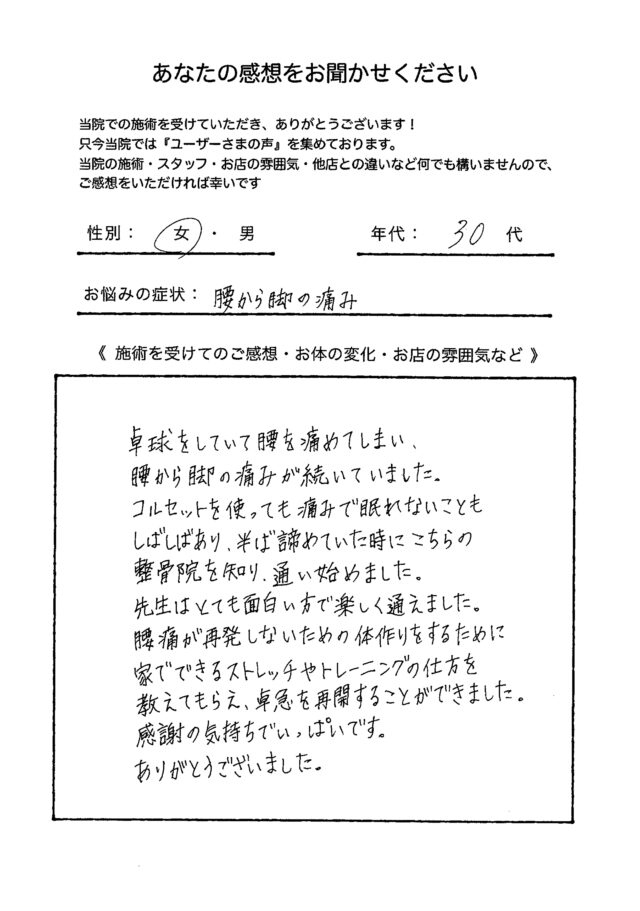 あなたの感想をお聞かせください
当院での施術を受けていただき、ありがとうございます！
只今当院では『ユーザーさまの声』を集めております。
当院の施術・スタッフ・お店の雰囲気・他店との違いなど何でも構いませんので、
ご感想をいただければ幸いです
性別： 女 ・ 男 年代： 30 代
お悩みの症状： 腰から脚の痛み
《 施術を受けてのご感想・お体の変化・お店の雰囲気など 》
卓球をしていて腰を痛めてしまい、
腰から脚の痛みが続いていました。
コルセットを使っても痛みで眠れないことも
しばしばあり、半ば諦めていた時にこちらの
整骨院を知り、通い始めました。
先生はとても面白い方で楽しく通えました。
腰痛が再発しないための体作りをするために
家でできるストレッチやトレーニングの仕方を
教えてもらえ、卓急を再開することができました。
感謝の気持ちでいっぱいです。
ありがとうございました。